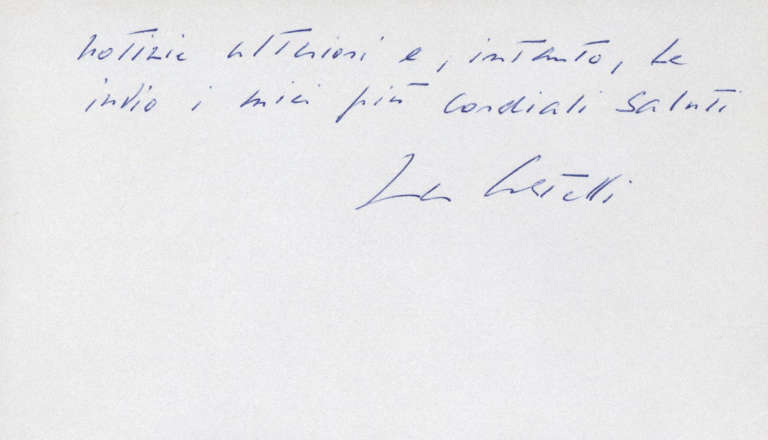 notizie ulteriori e, intanto, Le
invio i miei più cordiali saluti